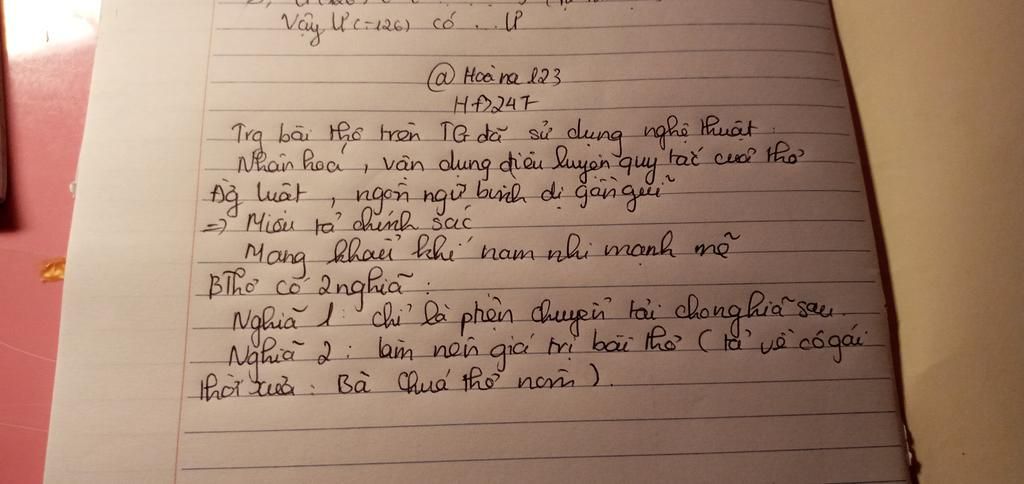 Vậy Ư(-126) có ... Ư
@ Hoàna 123
Hf>247
Trg bài thơ trên TG đã sử dụng nghệ thuật :
Nhân hoá, vân dung điêu luyện quy tắc cuả thơ
Đg luật, ngôn ngữ bình dị gần guĩ
=> Miêu tả chính sác
Mang khaủ khí nam nhi mạnh mẽ
BThơ có 2 nghiã :
Nghiã 1 : chỉ là phện chuyển tải cho nghiã sau.
Nghiã 2 : làm nên giá trị baì thơ ( tả về cô gái
thời xưa : Bà Chuá thơ nôm ).